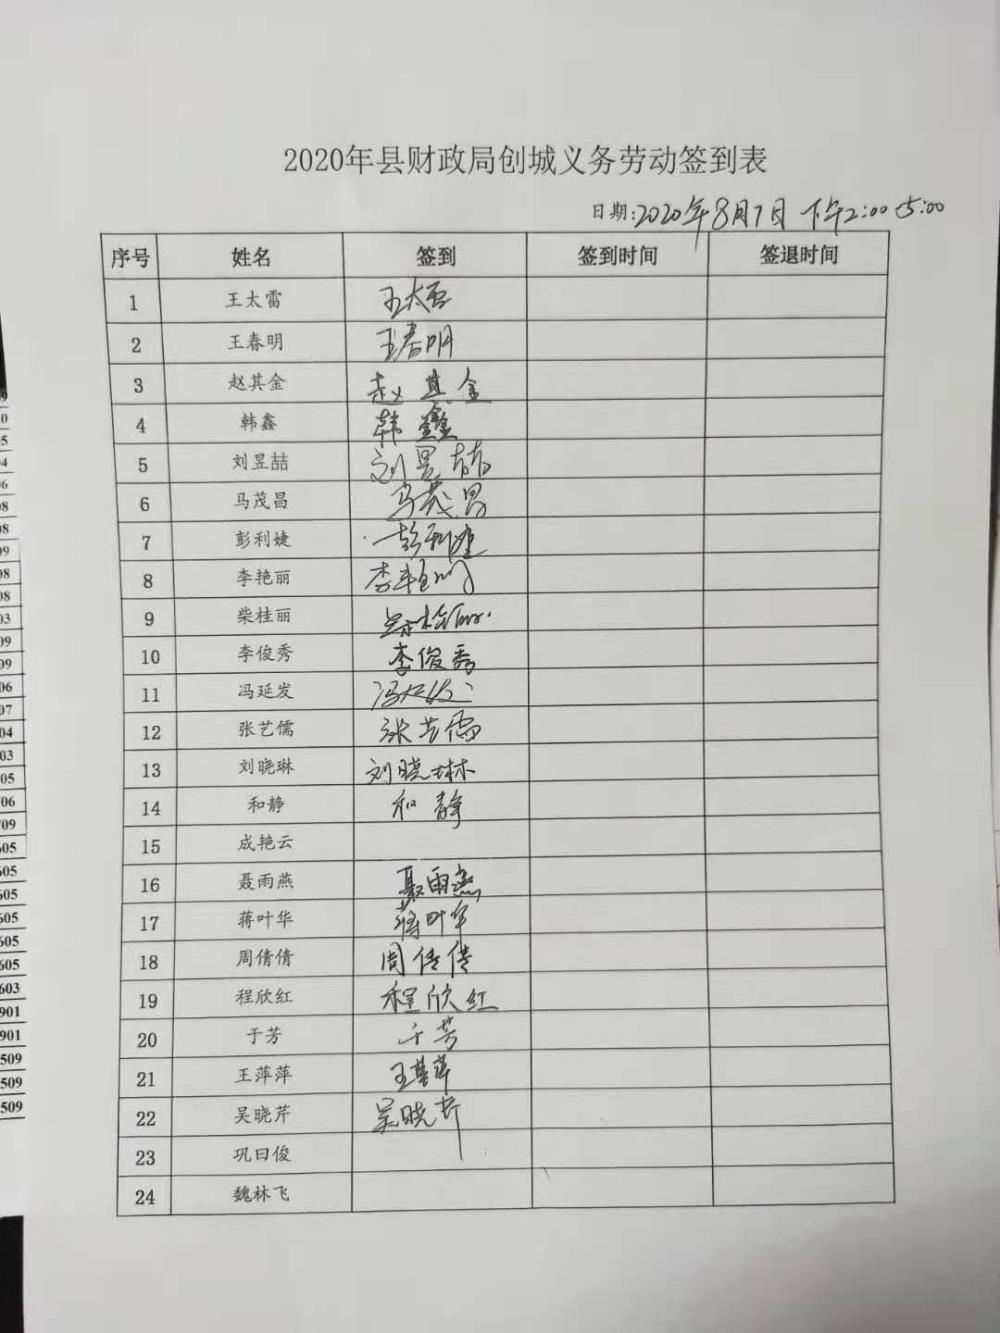 2020年县财政局创城义务劳动签到表
日期:2020年8月7日 下午2:00-5:00
序号 姓名 签到 签到时间 签退时间
1 王太雷 王太雷
2 王春明 王春明
3 赵其金 赵其金
4 韩鑫 韩鑫
5 刘昱喆 刘昱喆
6 马茂昌 马茂昌
7 彭利婕 彭利婕
8 李艳丽 李艳丽
9 柴桂丽 柴桂丽
10 李俊秀 李俊秀
11 冯延发 冯延发
12 张艺儒 张艺儒
13 刘晓琳 刘晓琳
14 和静 和静
15 成艳云
16 聂雨燕 聂雨燕
17 蒋叶华 蒋叶华
18 周倩倩 周倩倩
19 程欣红 程欣红
20 于芳 于芳
21 王萍萍 王萍萍
22 吴晓芹 吴晓芹
23 巩曰俊
24 魏林飞